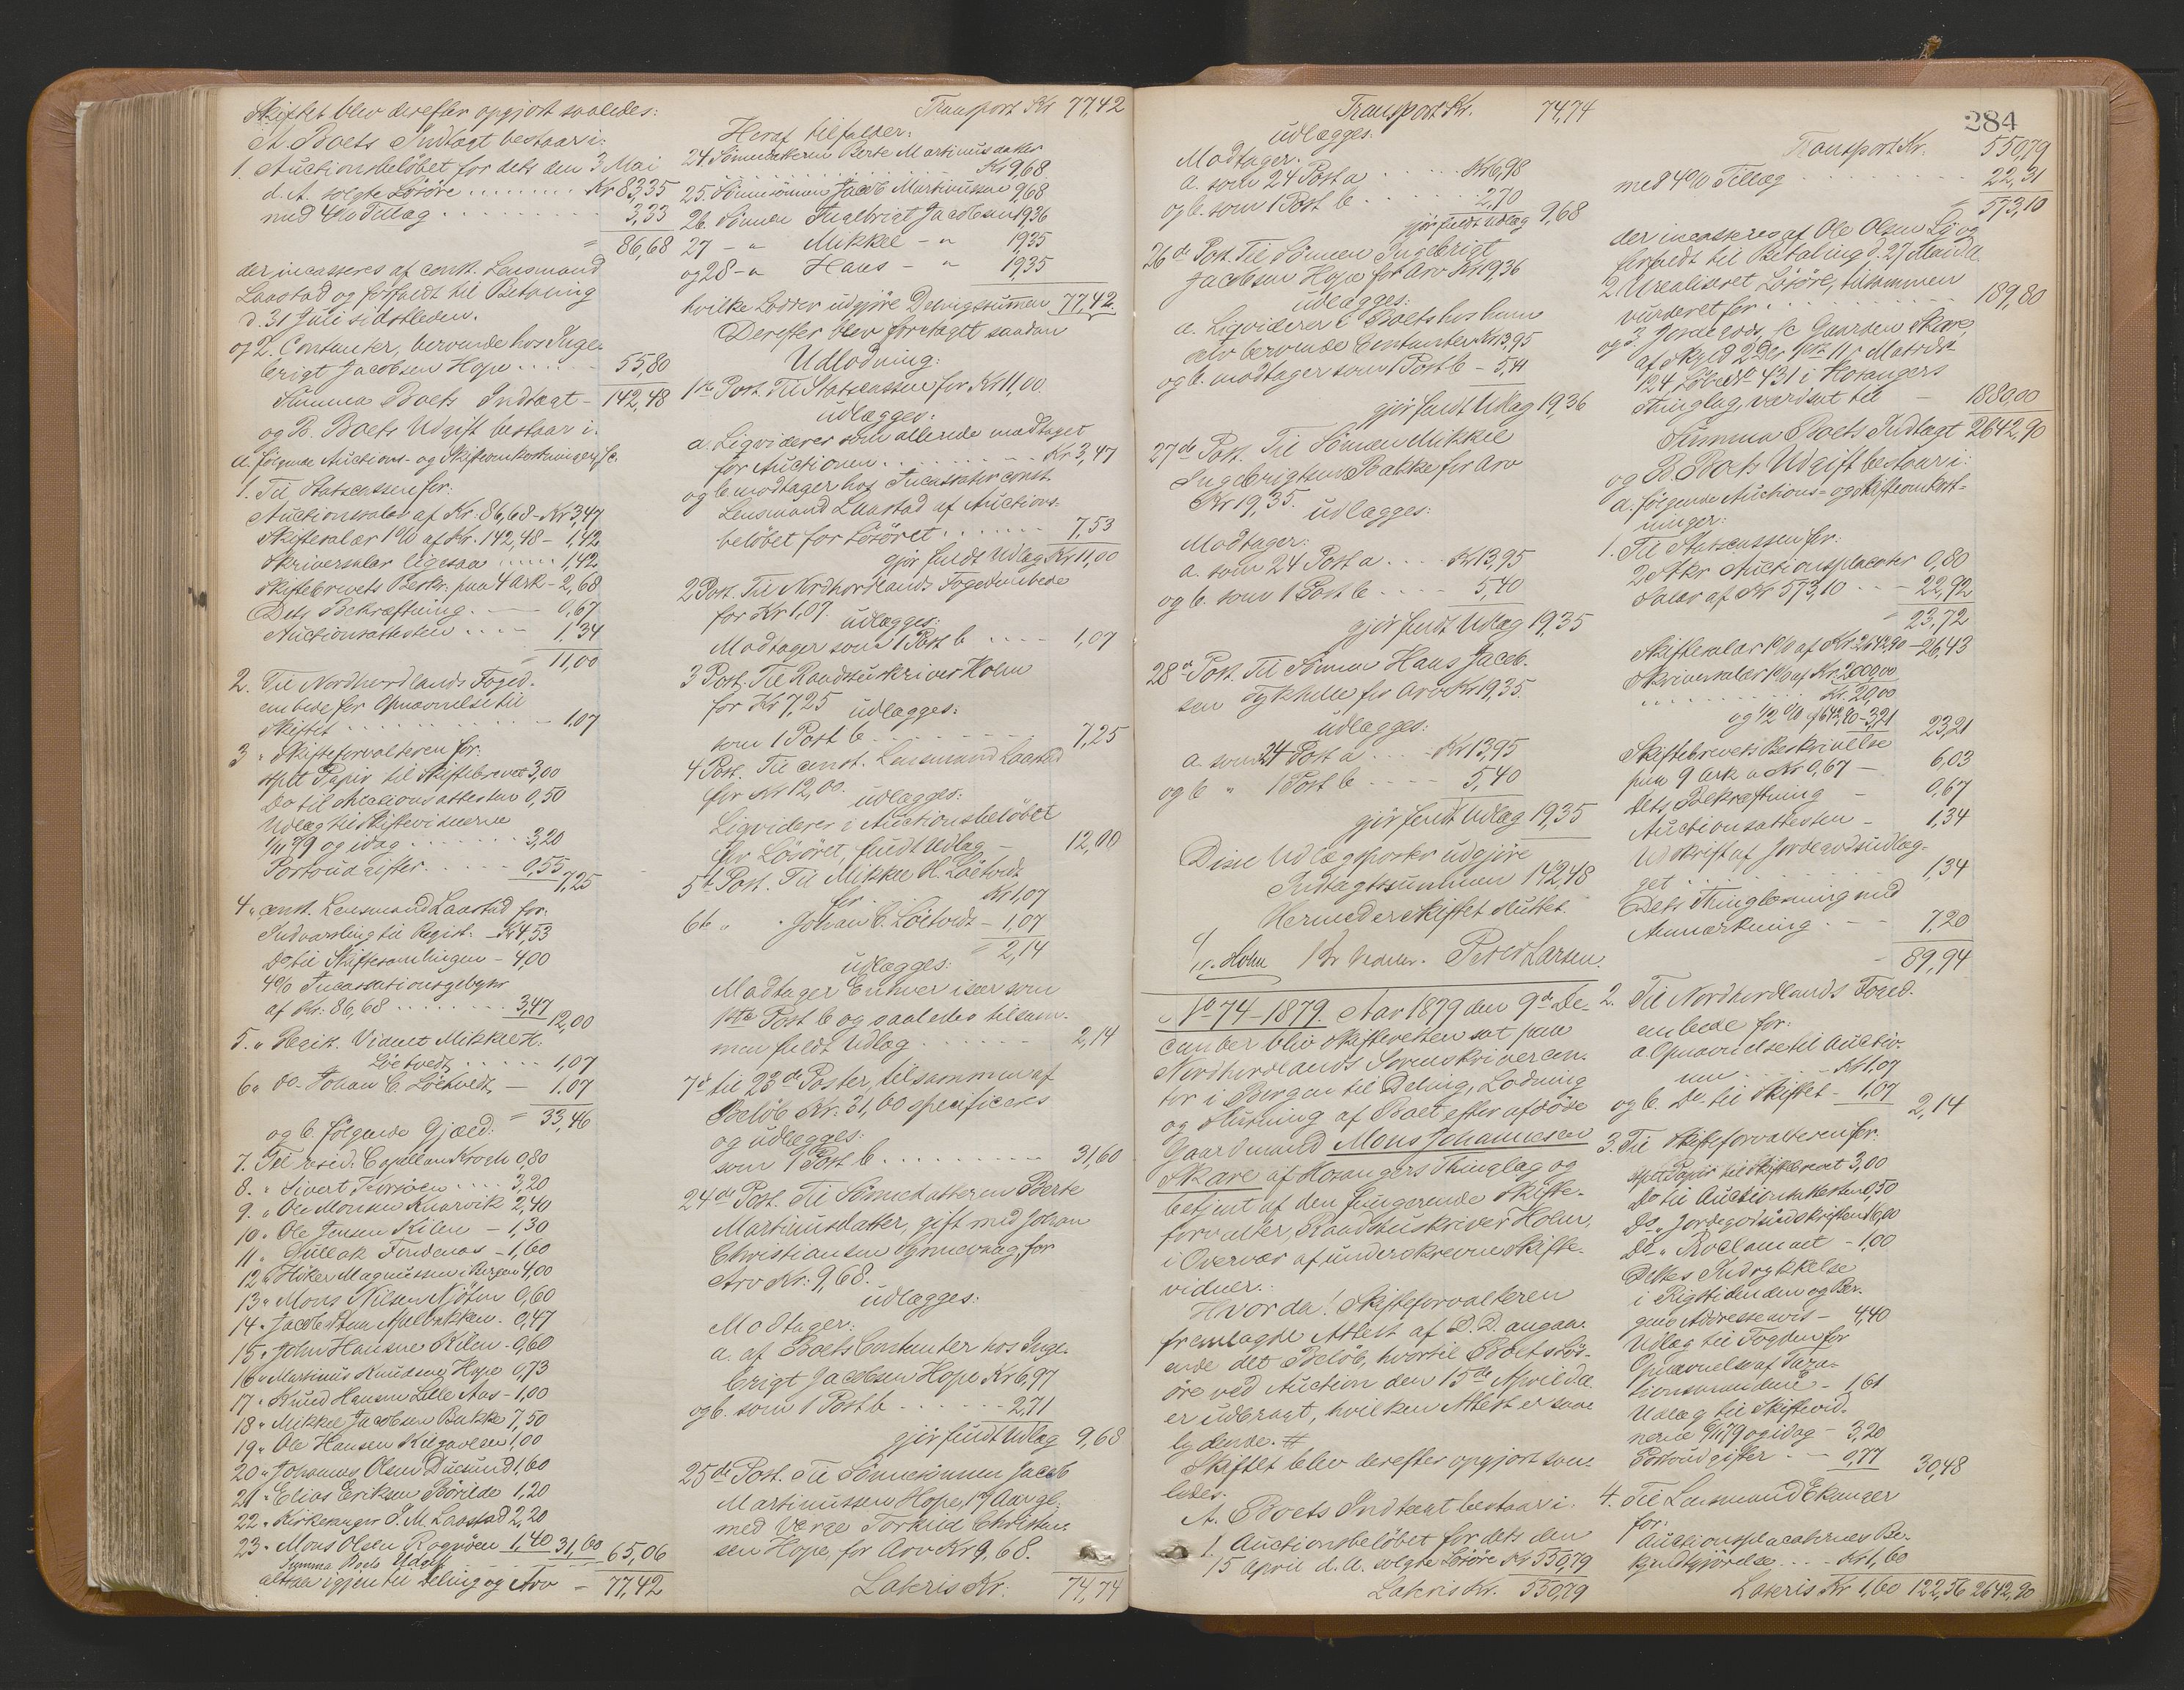 Skiftet blev derefter opgjort saaledes:
A. Boets Indtægt bestaar i:
1. Auctionsbeløbet for dets den 3 Mai
d. A. solgte Løsøre ........ Kr 83,35
med 4% Tillæg ........ 3,33
= 86,68
der incasseres af const. Lensmand
Laastad og forfaldt til Betaling
d. 31 Juli sidstleden.
og 2. Contanter, beroende hos Inge-
brigt Jacobsen Hope .... 55,80
Summa Boets Indtægt - 142,48
og B. Boets Udgift bestaar i:
a. følgende Auctions- og Skifteomkostninger, sc.
1. Til Statscassen for:
Auctionssalær af Kr. 86,68 - Kr 3,47
Skiftesalær 1% af Kr. 142,48 - 1,42
Skriversalær ligesaa ..... 1,42
Skiftebrevets Beskr. paa 4 Ark - 2,68
Dets Bekræftning .... 0,67
Auctionsattesten .... 1,34
= 11,00
2. Til Nordhordlands Foged-
embede for Opnævnelse til
Skiftet ........ 1,07
3 " Skifteforvalteren for:
stplt Papir til Skiftebrevet 3,00
Do til Auctionsattesten 0,50
Udlæg til Skiftevidnerne
og idag ..... 3,20
Portoudgifter ..... 0,55
7,25
4 " const. Lensmand Laastad for:
Indvarsling til Regist. - Kr 4,53
Do til Skiftesamlingen - 4,00
4% Incassationsgebyr
af Kr. 86,68 ....... 3,47
12,00
5. " Regist. Vidnet Mikkel H.
Løetvedt ..... 1,07
6 " do - Johan C. Løetvedt - 1,07
= 33,46
og b. følgende Gjæld:
7. Til resid. Capellan Kroch 0,80
8. " Sivert .... 3,20
9. " Ole Monsen Knarvik 2,40
10 " Ole Jensen Kilen - 1,30
11 " Gullak Fondenæs - 1,60
12 " Høker Magnussen i Bergen 4,00
13 " Mons Nilsen 0,60
14 " Jacob 0,47
15 " John Hansen Kilen - 0,60
16 " Martinus Knudsen Hope 0,73
17 " Knud Hansen Lille Aas - 1,00
18 " Mikkel Jacobsen Bakke 7,50
19 " Ole Hansen 1,00
20 " Johannes Olsen 1,60
21 " Elias Eriksen 1,20
22 " Kirkesanger J. M. Laastad 2,20
23 " Mons Olsen 1,40 31,60
Summa Boets Udgift 65,06
altsaa igjen til Deling og Arv - 77,42
Transport Kr 77,42
Heraf tilfalder:
24. Sønnedatteren Berte Martinusdatter
Kr 9,68
25. Sønnesønnen Jacob Martinussen 9,68
26. Sønnen Ingebrigt Jacobsen 19,36
27 - " Mikkel - " 19,35
og 28 - " Hans - " 19,35
hvilke Lodder udgjøre Delingssummen 77,42
Derefter blev foretaget saadan
Udlodning:
1ste Post. Til Statscassen for Kr 11,00
udlægges:
a. Ligviderer som allerede modtaget
for Auctionen ........ Kr 3,47
og b. modtager hos Incassator const.
Lensmand Laastad af Auctions-
beløbet for Løsøret ...... 7,53
gjør fuldt Udlæg Kr 11,00
2 Post. Til Nordhordlands Fogedembede
for Kr 1,07 udlægges:
Modtager som 1 Post b .... 1,07
3 Post. Til Raadstuskriver Holm
for Kr 7,25 udlægges:
som 1 Post b ....... 7,25
4 Post. Til const. Lensmand Laastad
for Kr 12,00. udlægges:
Ligviderer i Auctionsbeløbet
for Løsøret, fuldt Udlæg - 12,00
5te Post. Til Mikkel H. Løetvedt
for ... Kr 1,07
6te " " Johan C. Løetvedt - 1,07
= 2,14
udlægges:
Modtager Enhver især som
1ste Post b og saaledes tilsam-
men fuldt Udlæg ...... 2,14
7de til 23de Poster, tilsammen af
Beløb Kr. 31,60 specificeres
og udlægges:
som 1 Post b ........ 31,60
24de Post. Til Sønnedatteren Berte
Martinusdatter, gift med Johan
Christiansen for
Arv Kr. 9,68.
udlægges:
Modtager:
a. af Boets Contanter hos Inge-
brigt Jacobsen Hope Kr 6,97
og b. som 1 Post b ...... 2,71
gjør fuldt Udlæg 9,68
25de Post. Til Sønnesønnen Jacob
Martinussen Hope, 17 Aar gl.
med Værge Torkild Christen-
sen Hope, for Arv Kr 9,68.
Lateris Kr. 74,74
Transport Kr. 74,74
udlægges:
Modtager:
a. som 24 Post a ..... Kr 6,98
og b. som 1 Post b ..... 2,70
gjør fuldt Udlæg 9,68
26de Post. Til Sønnen Ingebrigt
Jacobsen Hope for Arv Kr 19,36
udlægges:
a. Ligviderer i Boets hos ham
selv beroende Contanter Kr 13,95
og b. modtager som 1 Post b - 5,41
gjør fuldt Udlæg 19,36
27de Post. Til Sønnen Mikkel
Ingebrigtsen Bakke for Arv
Kr 19,35. udlægges:
Modtager:
a. som 24 Post a .... Kr 13,95
og b. som 1 Post b .... 5,40
gjør fuldt Udlæg 19,35
28de Post. Til Sønnen Hans Jacob-
sen for Arv Kr 19,35.
udlægges:
a. som 24 Post a .... Kr 13,95
og b " 1 Post b .... 5,40
gjør fuldt Udlæg 19,35
Disse Udlægsposter udgjøre
Indtægtssummen 142,48
Hermed er Skiftet sluttet.
Holm Peter Larsen.
No 74 - 1879. Aar 1879 den 9de De-
cember blev Skifteretten sat paa
Nordhordlands Sorenskrivercon-
tor i Bergen til Deling, Lodning
og Slutning af Boet efter afdøde
Gaardmand Mons Johannessen
Skare af Hosangers Thinglag og
betjent af den fungerende Skifte-
forvalter, Raadstuskriver Holm,
i Overvær af underskrevne Skifte-
vidner.:
Hvorda! Skifteforvalteren
fremlagde Attest af D. D. angaa-
ende det Beløb, hvortil Boets Løs-
øre ved Auction den 15de April d. A.
er udbragt, hvilken Attest er saa-
lydende. #
Skiftet blev derefter opgjort saa-
ledes:
A. Boets Indtægt bestaar i:
1. Auctionsbeløbet for dets den
15 April d. A. solgte Løsøre Kr 550,79
Lateris Kr. 550,79
284
Transport Kr. 550,79
med 4% Tillæg ....... 22,31
= 573,10
der incasseres af Ole Olsen og
forfaldt til Betaling d. 27 Mai d. A.
2. Urealiseret Løsøre, tilsammen
vurderet for ........ 189,80
og 3. Jordegods, sc Gaarden Skare,
af Skyld 2 Dlr 11 s Matr. No
124 Løbeno 431 i Hosangers
Thinglag, værdsat til - 1880,00
Summa Boets Indtægt 2642,90
og B. Boets Udgift bestaar i:
a. følgende Auctions- og Skifteomkost-
ninger:
1. Til Statscassen for:
2 Stkr Auctionsplacater 0,80
Salær af Kr 573,10 ... 22,92
= 23,72
Skiftesalær 1% af Kr. 2642,90 - 26,43
Skriversalær 1% af Kr. 2000,00
........ Kr. 20,00
og 1/2 % af 642,90 - 3,21 23,21
Skiftebrevets Beskrivelse
paa 9 Ark a Kr 0,67 - 6,03
dets Bekræftning - 0,67
Auctionsattesten - 1,34
Udskrift af Jordegodsudlæg-
get ........ 1,34
Dets Thinglæsning med
Anmærkning ... 7,20
- 89,94
2. Til Nordhordlands Foged-
embede for:
a. Opnævnelse til Auctio-
nen ...... Kr 1,07
og b. Do til Skiftet - 1,07 2,14
3. Til Skifteforvalteren for:
stplt Papir til Skiftebrevet 3,00
Do til Auctionsattesten 0,50
Do " Jordegodsudskriften
Do " Proclamaet - 1,00
Dettes Indrykkelse
i Rigstidenden og Ber-
gens Addresseavis - 4,40
Udlæg til Fogden for
Opnævnelse af Taxa-
tionsmændene - 1,61
Udlæg til Skiftevid-
nerne og idag - 3,20
Portoudgifter ... 0,77 30,48
4. Til Lensmand Ekanger
for:
Auctionsplacaternes Be-
kjendtgjørelse .... Kr 1,60
Lateris Kr 1,60 122,56 2642,90